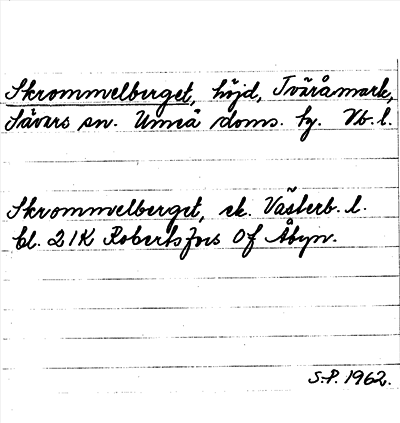 Skrommelberget, höjd, Tväråmark,
Sävars sn. Umeå doms. hg. Vb. l.
Skrommelberget, ek. Västerb. l.
bl. 21K Robertsfors 0f Åbyn.
S.P. 1962.